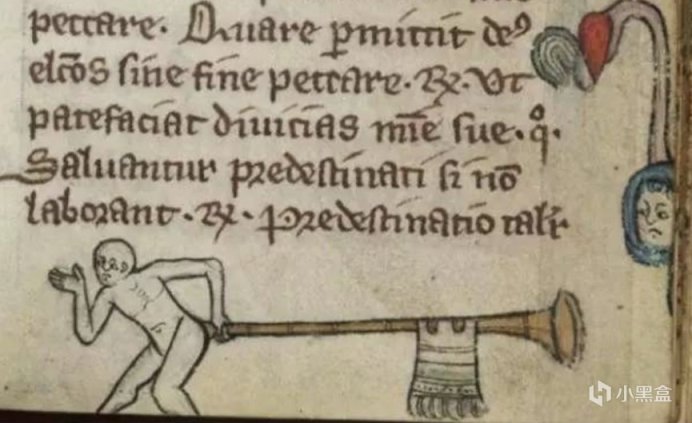 peccare. Quare ꝑmittit deꝰ
elc̄os sine fine peccare. ℞. Vt
patefaciat diuicias mīe sue. q̊.
Saluantur predestinati si nō
laborant. ℞. Predestinatio tali᷑
小黑盒